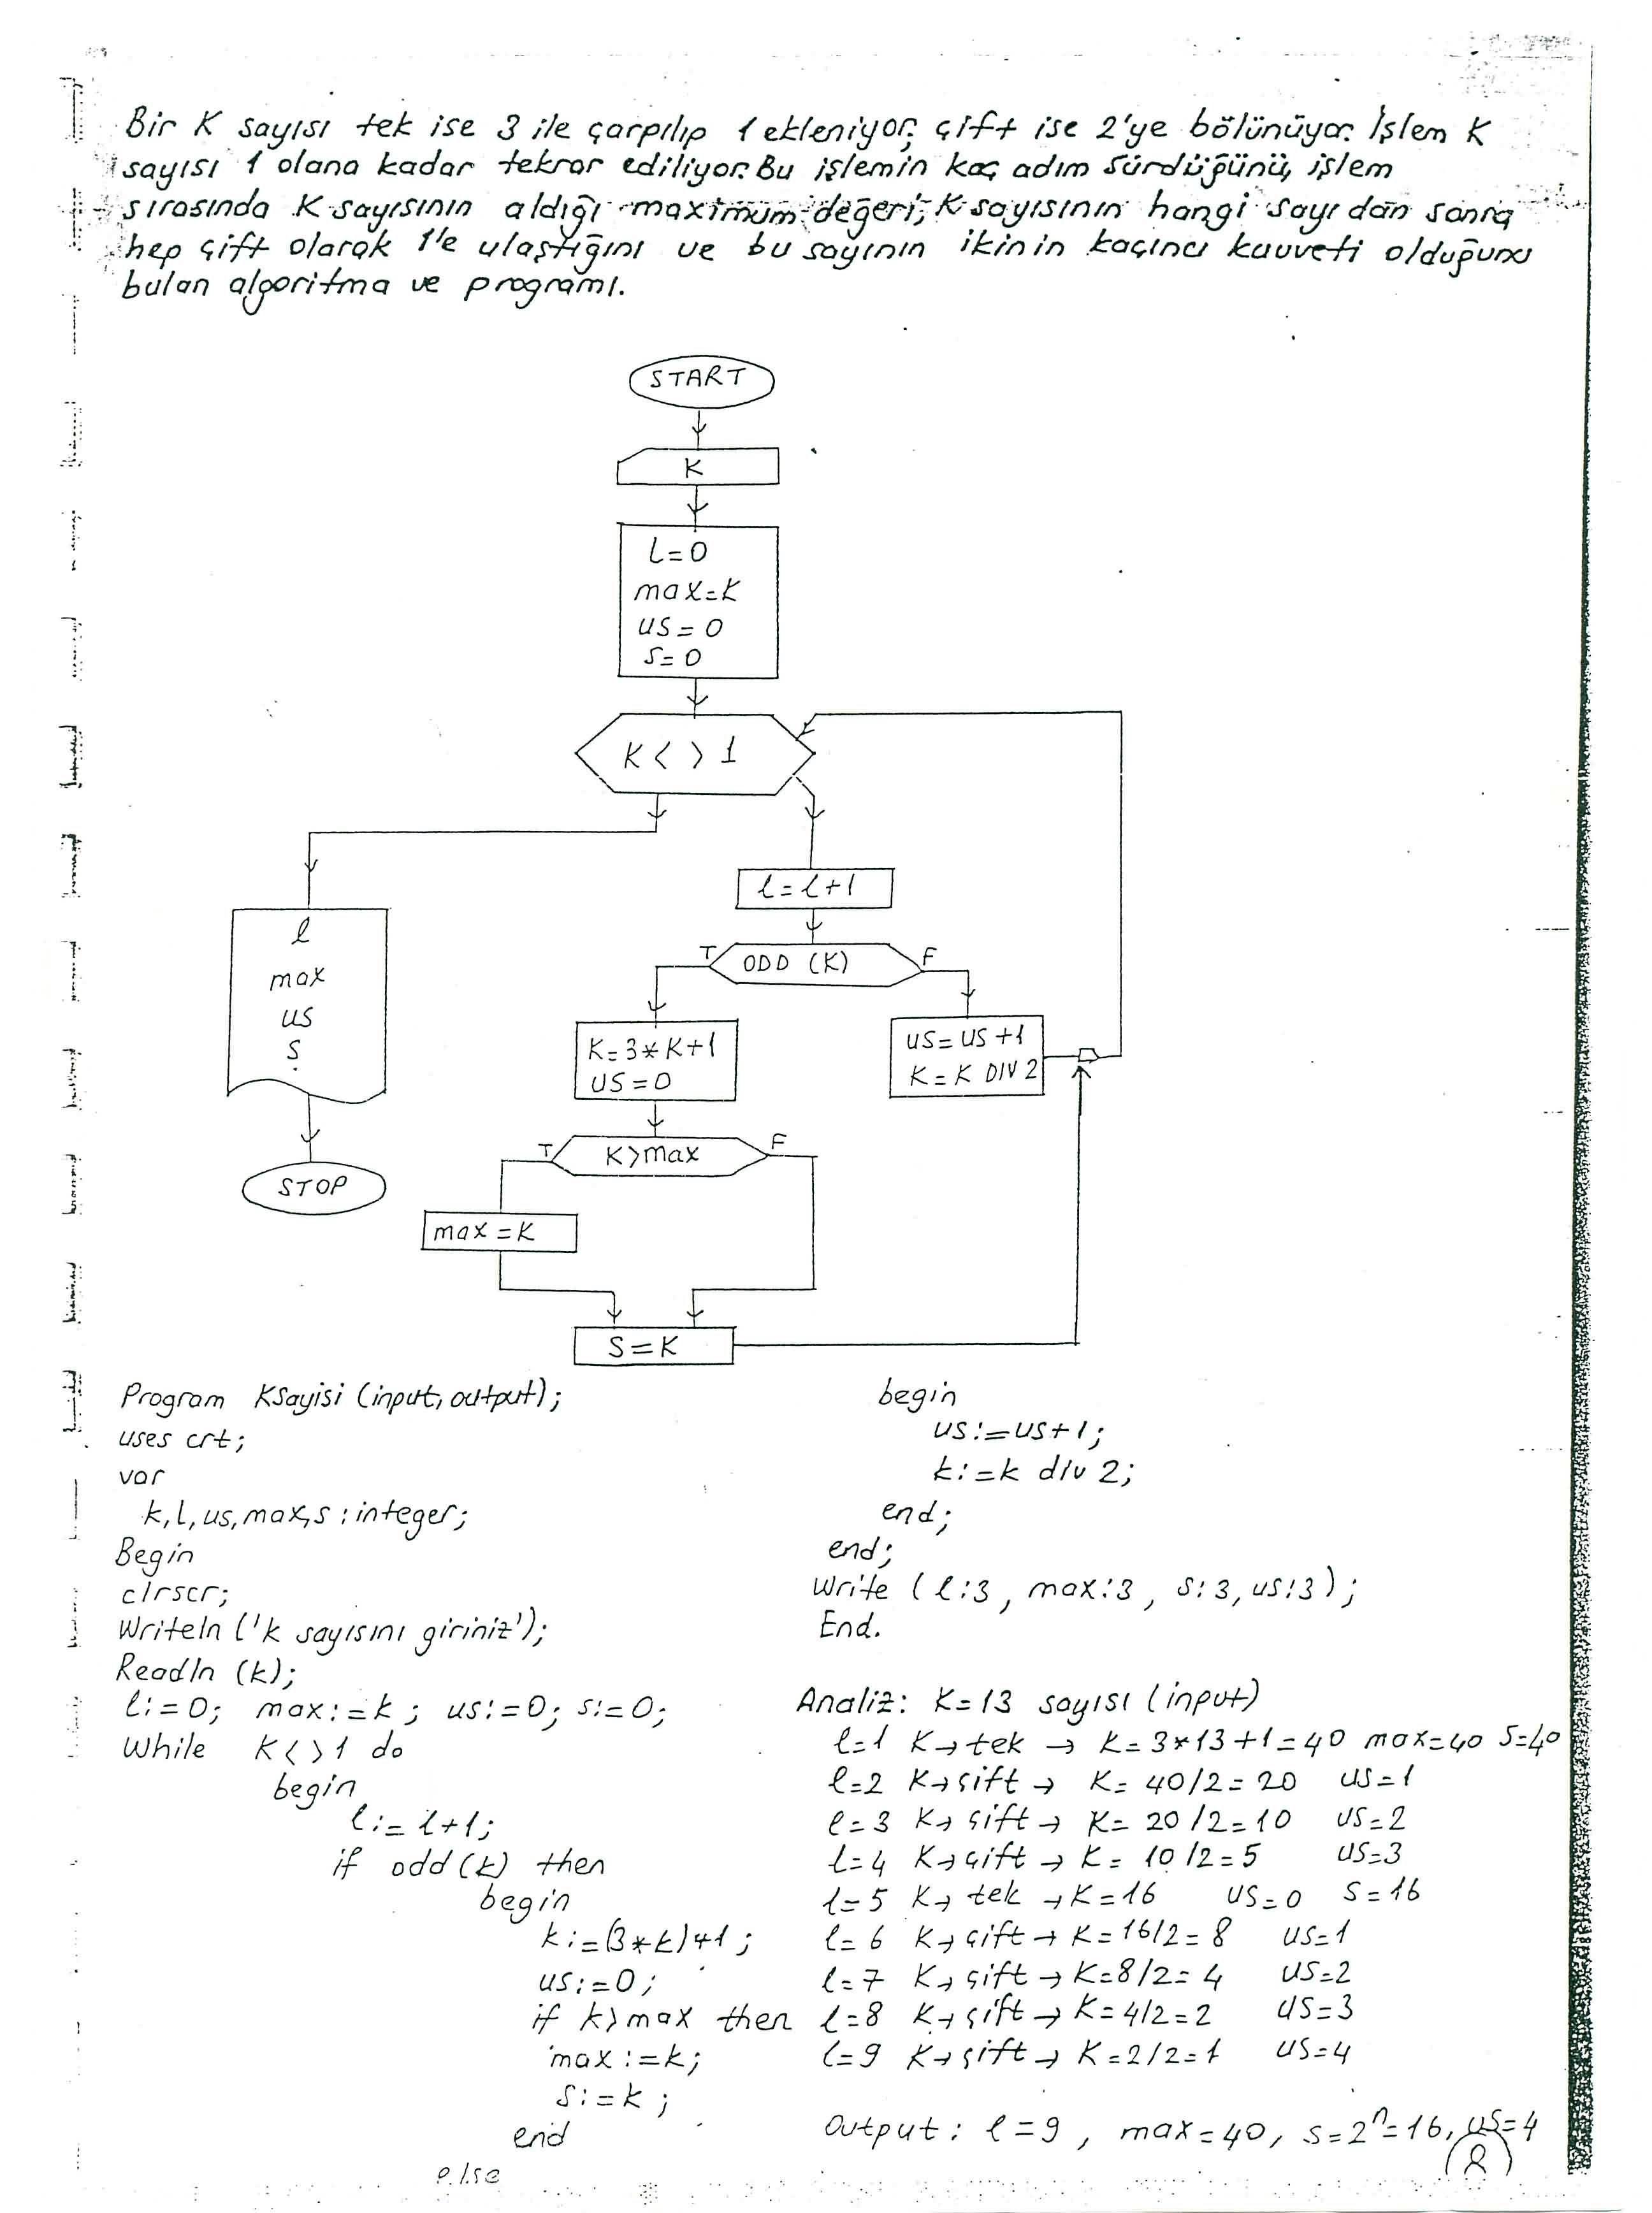 Bir K sayısı tek ise 3 ile çarpılıp 1 ekleniyor, çift ise 2'ye bölünüyor. İşlem K
sayısı 1 olana kadar tekrar ediliyor. Bu işlemin kaç adım sürdüğünü, işlem
sırasında K sayısının aldığı maximum değeri, K sayısının hangi sayıdan sonra
hep çift olarak 1'e ulaştığını ve bu sayının ikinin kaçıncı kuvveti olduğunu
bulan algoritma ve programı.
START
K
l=0
max=K
us=0
s=0
K< >1
l=l+1
ODD (K)
T
F
l
max
us
s
STOP
K=3*K+1
us=0
us=us+1
K=K DIV 2
K>max
T
F
max=K
S=K
Program KSayisi (input, output);
uses crt;
var
k, l, us, max, s : integer;
Begin
clrscr;
Writeln ('k sayısını giriniz');
Readln (k);
l:=0; max:=k; us:=0; s:=0;
While K< >1 do
begin
l:=l+1;
if odd(k) then
begin
k:=(3*k)+1;
us:=0;
if k>max then
max:=k;
s:=k;
end
else
begin
us:=us+1;
k:=k div 2;
end;
end;
Write (l:3, max:3, s:3, us:3);
End.
Analiz: K=13 sayısı (input)
l=1 K→tek → K=3*13+1=40 max=40 S=40
l=2 K→çift → K=40/2=20 us=1
l=3 K→çift → K=20/2=10 us=2
l=4 K→çift → K=10/2=5 us=3
l=5 K→tek →K=16 us=0 s=16
l=6 K→çift→K=16/2=8 us=1
l=7 K→çift→K=8/2=4 us=2
l=8 K→çift→K=4/2=2 us=3
l=9 K→çift→K=2/2=1 us=4
Output: l=9, max=40, s=2ⁿ=16, us=4
8